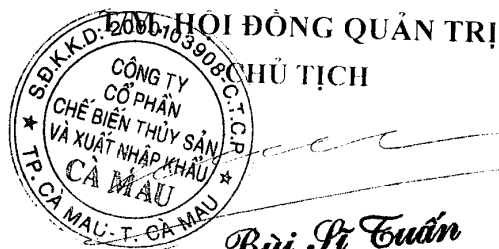 T/M HỘI ĐỒNG QUẢN TRỊ
CHỦ TỊCH
S.Đ.K.K.D: 2000103908-C.T.C.P
CÔNG TY
CỔ PHẦN
CHẾ BIẾN THỦY SẢN
VÀ XUẤT NHẬP KHẨU
CÀ MAU
TP. CÀ MAU - T. CÀ MAU
Bùi Sĩ Tuấn